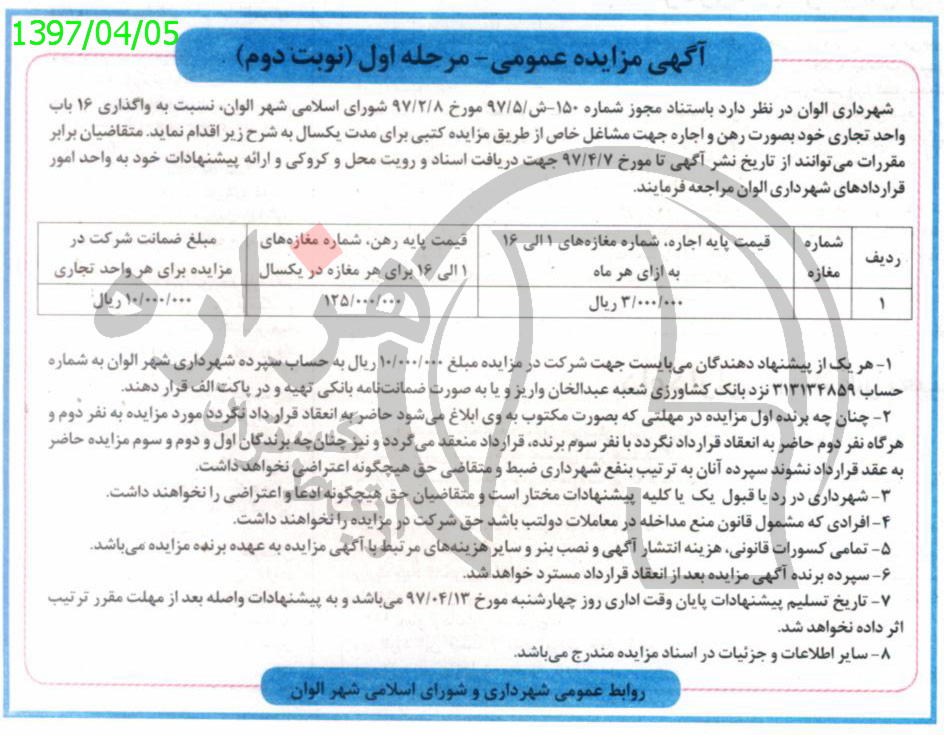 1397/04/05
آگهی مزایده عمومی - مرحله اول (نوبت دوم)
شهرداری الوان در نظر دارد باستناد مجوز شماره ۱۵۰-ش/۹۷/۵ مورخ ۹۷/۲/۸ شورای اسلامی شهر الوان، نسبت به واگذاری ۱۶ باب
واحد تجاری خود بصورت رهن و اجاره جهت مشاغل خاص از طریق مزایده کتبی برای مدت یکسال به شرح زیر اقدام نماید. متقاضیان برابر
مقررات می‌توانند از تاریخ نشر آگهی تا مورخ ۹۷/۴/۷ جهت دریافت اسناد و رویت محل و کروکی و ارائه پیشنهادات خود به واحد امور
قراردادهای شهرداری الوان مراجعه فرمایند.
ردیف
شماره مغازه
قیمت پایه اجاره، شماره مغازه‌های ۱ الی ۱۶
به ازای هر ماه
قیمت پایه رهن، شماره مغازه‌های
۱ الی ۱۶ برای هر مغازه در یکسال
مبلغ ضمانت شرکت در
مزایده برای هر واحد تجاری
۱
۳/۰۰۰/۰۰۰ ریال
۱۲۵/۰۰۰/۰۰۰
۱۰/۰۰۰/۰۰۰ ریال
۱- هر یک از پیشنهاد دهندگان می‌بایست جهت شرکت در مزایده مبلغ ۱۰/۰۰۰/۰۰۰ ریال به حساب سپرده شهرداری شهر الوان به شماره
حساب ۳۱۳۱۳۴۸۵۹ نزد بانک کشاورزی شعبه عبدالخان واریز و یا به صورت ضمانت‌نامه بانکی تهیه و در پاکت الف قرار دهند.
۲- چنان چه برنده اول مزایده در مهلتی که بصورت مکتوب به وی ابلاغ می‌شود حاضر به انعقاد قرار داد نگردد مورد مزایده به نفر دوم و
هرگاه نفر دوم حاضر به انعقاد قرارداد نگردد با نفر سوم برنده، قرارداد منعقد می‌گردد و نیز چنان‌چه برندگان اول و دوم و سوم مزایده حاضر
به عقد قرارداد نشوند سپرده آنان به ترتیب بنفع شهرداری ضبط و متقاضی حق هیچگونه اعتراضی نخواهد داشت.
۳- شهرداری در رد یا قبول یک یا کلیه پیشنهادات مختار است و متقاضیان حق هیچگونه ادعا و اعتراضی را نخواهند داشت.
۴- افرادی که مشمول قانون منع مداخله در معاملات دولتی باشد حق شرکت در مزایده را نخواهند داشت.
۵- تمامی کسورات قانونی، هزینه انتشار آگهی و نصب بنر و سایر هزینه‌های مرتبط با آگهی مزایده به عهده برنده مزایده می‌باشد.
۶- سپرده برنده آگهی مزایده بعد از انعقاد قرارداد مسترد خواهد شد.
۷- تاریخ تسلیم پیشنهادات پایان وقت اداری روز چهارشنبه مورخ ۹۷/۰۴/۱۳ می‌باشد و به پیشنهادات واصله بعد از مهلت مقرر ترتیب
اثر داده نخواهد شد.
۸- سایر اطلاعات و جزئیات در اسناد مزایده مندرج می‌باشد.
روابط عمومی شهرداری و شورای اسلامی شهر الوان